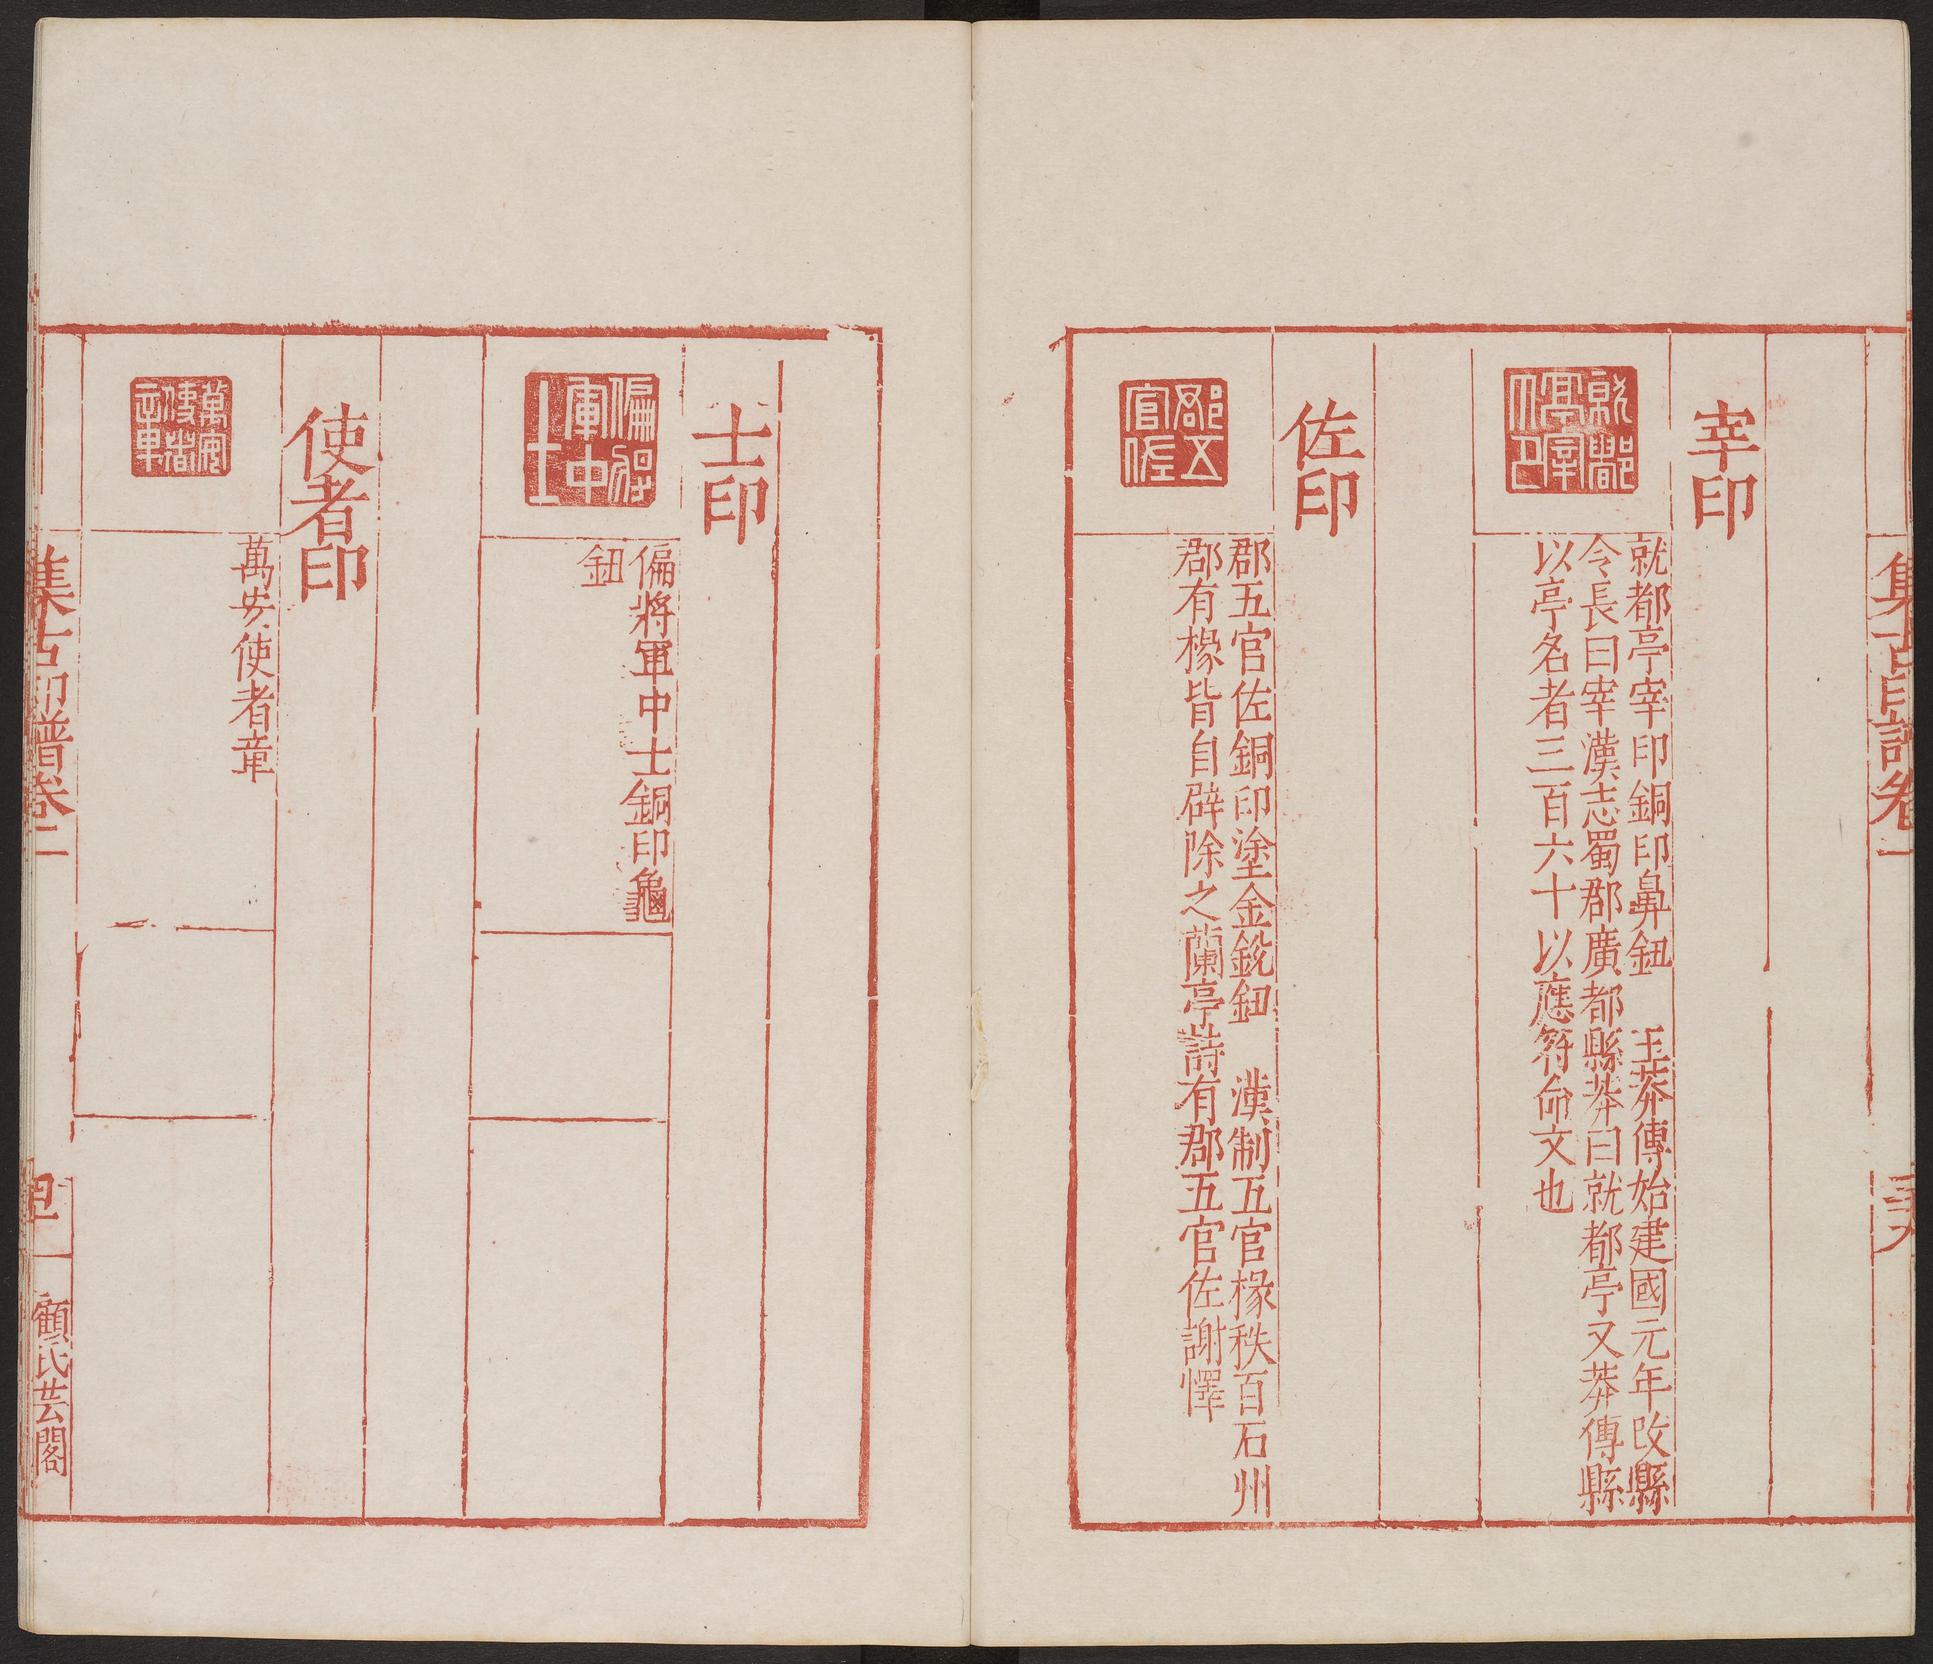 集古印譜卷二
宰印
就都亭宰印
就都亭宰印銅印鼻鈕　王莽傳始建國元年改縣
令長曰宰漢志蜀郡廣都縣莽曰就都亭又莽傳縣
以亭名者三百六十以應符命文也
佐印
郡五官佐
郡五官佐銅印塗金鈕　漢制五官椽秩百石州
郡有椽皆自辟除之蘭亭詩有郡五官佐謝懌
士印
偏將軍中士
偏將軍中士銅印龜
鈕
使者印
萬安使者章
萬安使者章
集古印譜卷二
顧氏芸閣